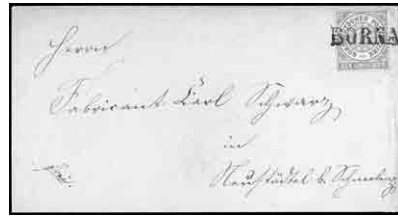 BORNA
Herrn
Fabricant Carl Schwarz
in
Neustädtel b. Schneeberg